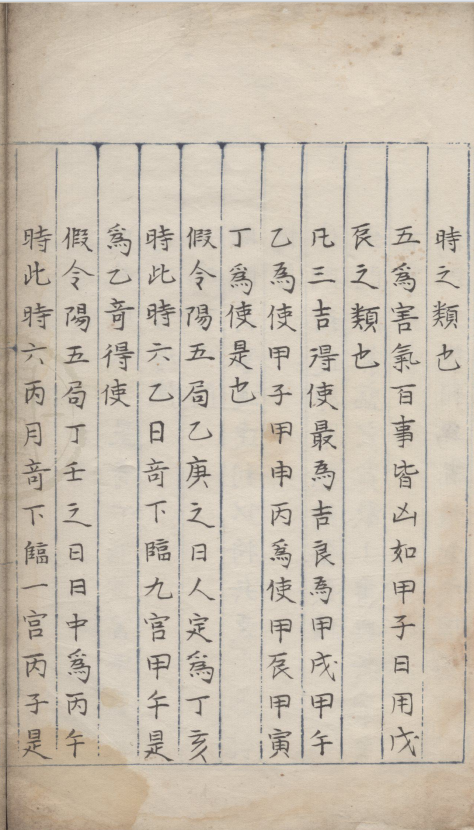 時之類也
五爲害氣百事皆凶如甲子日用戊
辰之類也
凡三吉得使最爲吉良爲甲戌甲午
乙爲使甲子甲申丙爲使甲辰甲寅
丁爲使是也
假令陽五局乙庚之日人定爲丁亥
時此時六乙日竒下臨九宮甲午是
爲乙竒得使
假令陽五局丁壬之日日中爲丙午
時此時六丙月竒下臨一宮丙子是